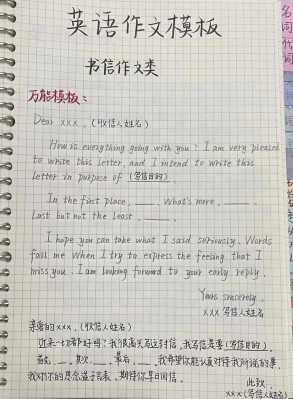 英语作文模板
书信作文类
万能模板：
Dear xxx，(收信人姓名)
How is everything going with you? I am very pleased
to write this letter, and I intend to write this
letter in purpose of (写信目的).
In the first place, ____. What's more, ____.
Last but not the least, ____.
I hope you can take what I said seriously. Words
fail me when I try to express the feeling that I
miss you. I am looking forward to your early reply.
Yours sincerely
xxx 写信人姓名
亲爱的xxx，(收信人姓名)
近来一切都好吗？我很高兴写这封信，我写信是要(写信目的)。
首先，__，其次，__，最后，__，我希望你能认真对待我所说的事，
我对你的思念溢于言表，期待你早日回信。
此致
xxx(写信人姓名)
名
词
代
词